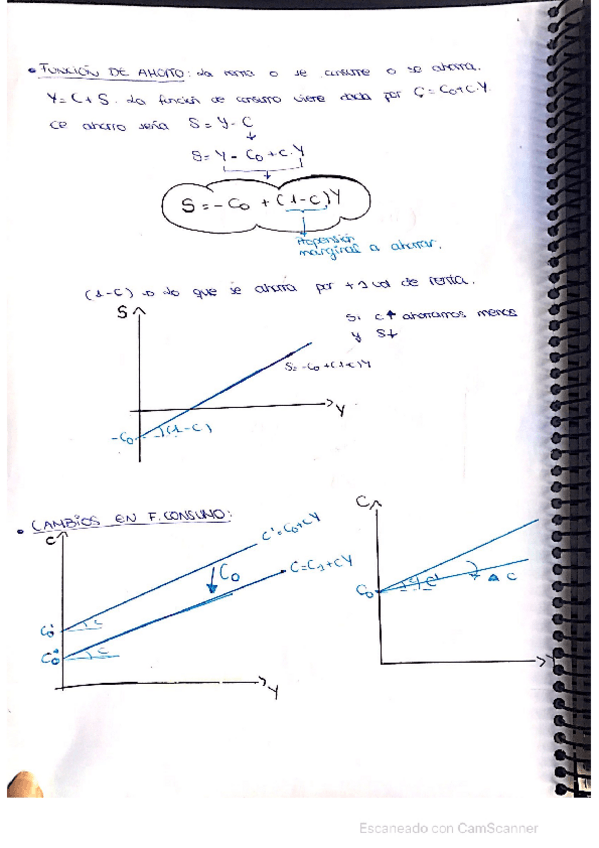 • FUNCIÓN DE AHORRO: la renta o se consume o se ahorra.
Y=C+S. La función de consumo viene dada por C=C₀+c.Y.
ce ahorro sería S=Y-C
↓
S=Y-C₀+c.Y
S=-C₀+(1-c)Y
Propensión
marginal a ahorrar.
(1-c) → lo que se ahorra por +1 ud de renta.
S
Si c↑ ahorramos menos
y S↓
S=-C₀+(1-c)Y
Y
-C₀
(1-c)
• CAMBIOS EN F. CONSUMO:
C
C'=C₀+cY
C₀
C=C₁+cY
C₀'
c
c
Y
C
C₀
c'
▲ c
Escaneado con CamScanner